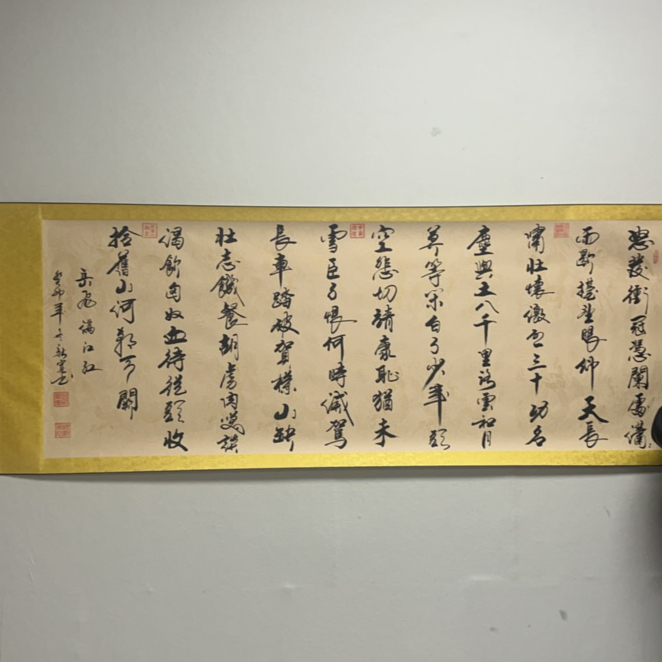 怒髮衝冠憑闌處瀟々
雨歇擡望眼仰天長
嘯壯懷激烈三十功名
塵與土八千里路雲和月
莫等閑白了少年頭
空悲切靖康恥猶未
雪臣子恨何時滅駕
長車踏破賀蘭山缺
壯志饑餐胡虜肉笑談
渴飲匈奴血待從頭收
拾舊山河朝天闕
岳飛滿江紅
癸卯年書